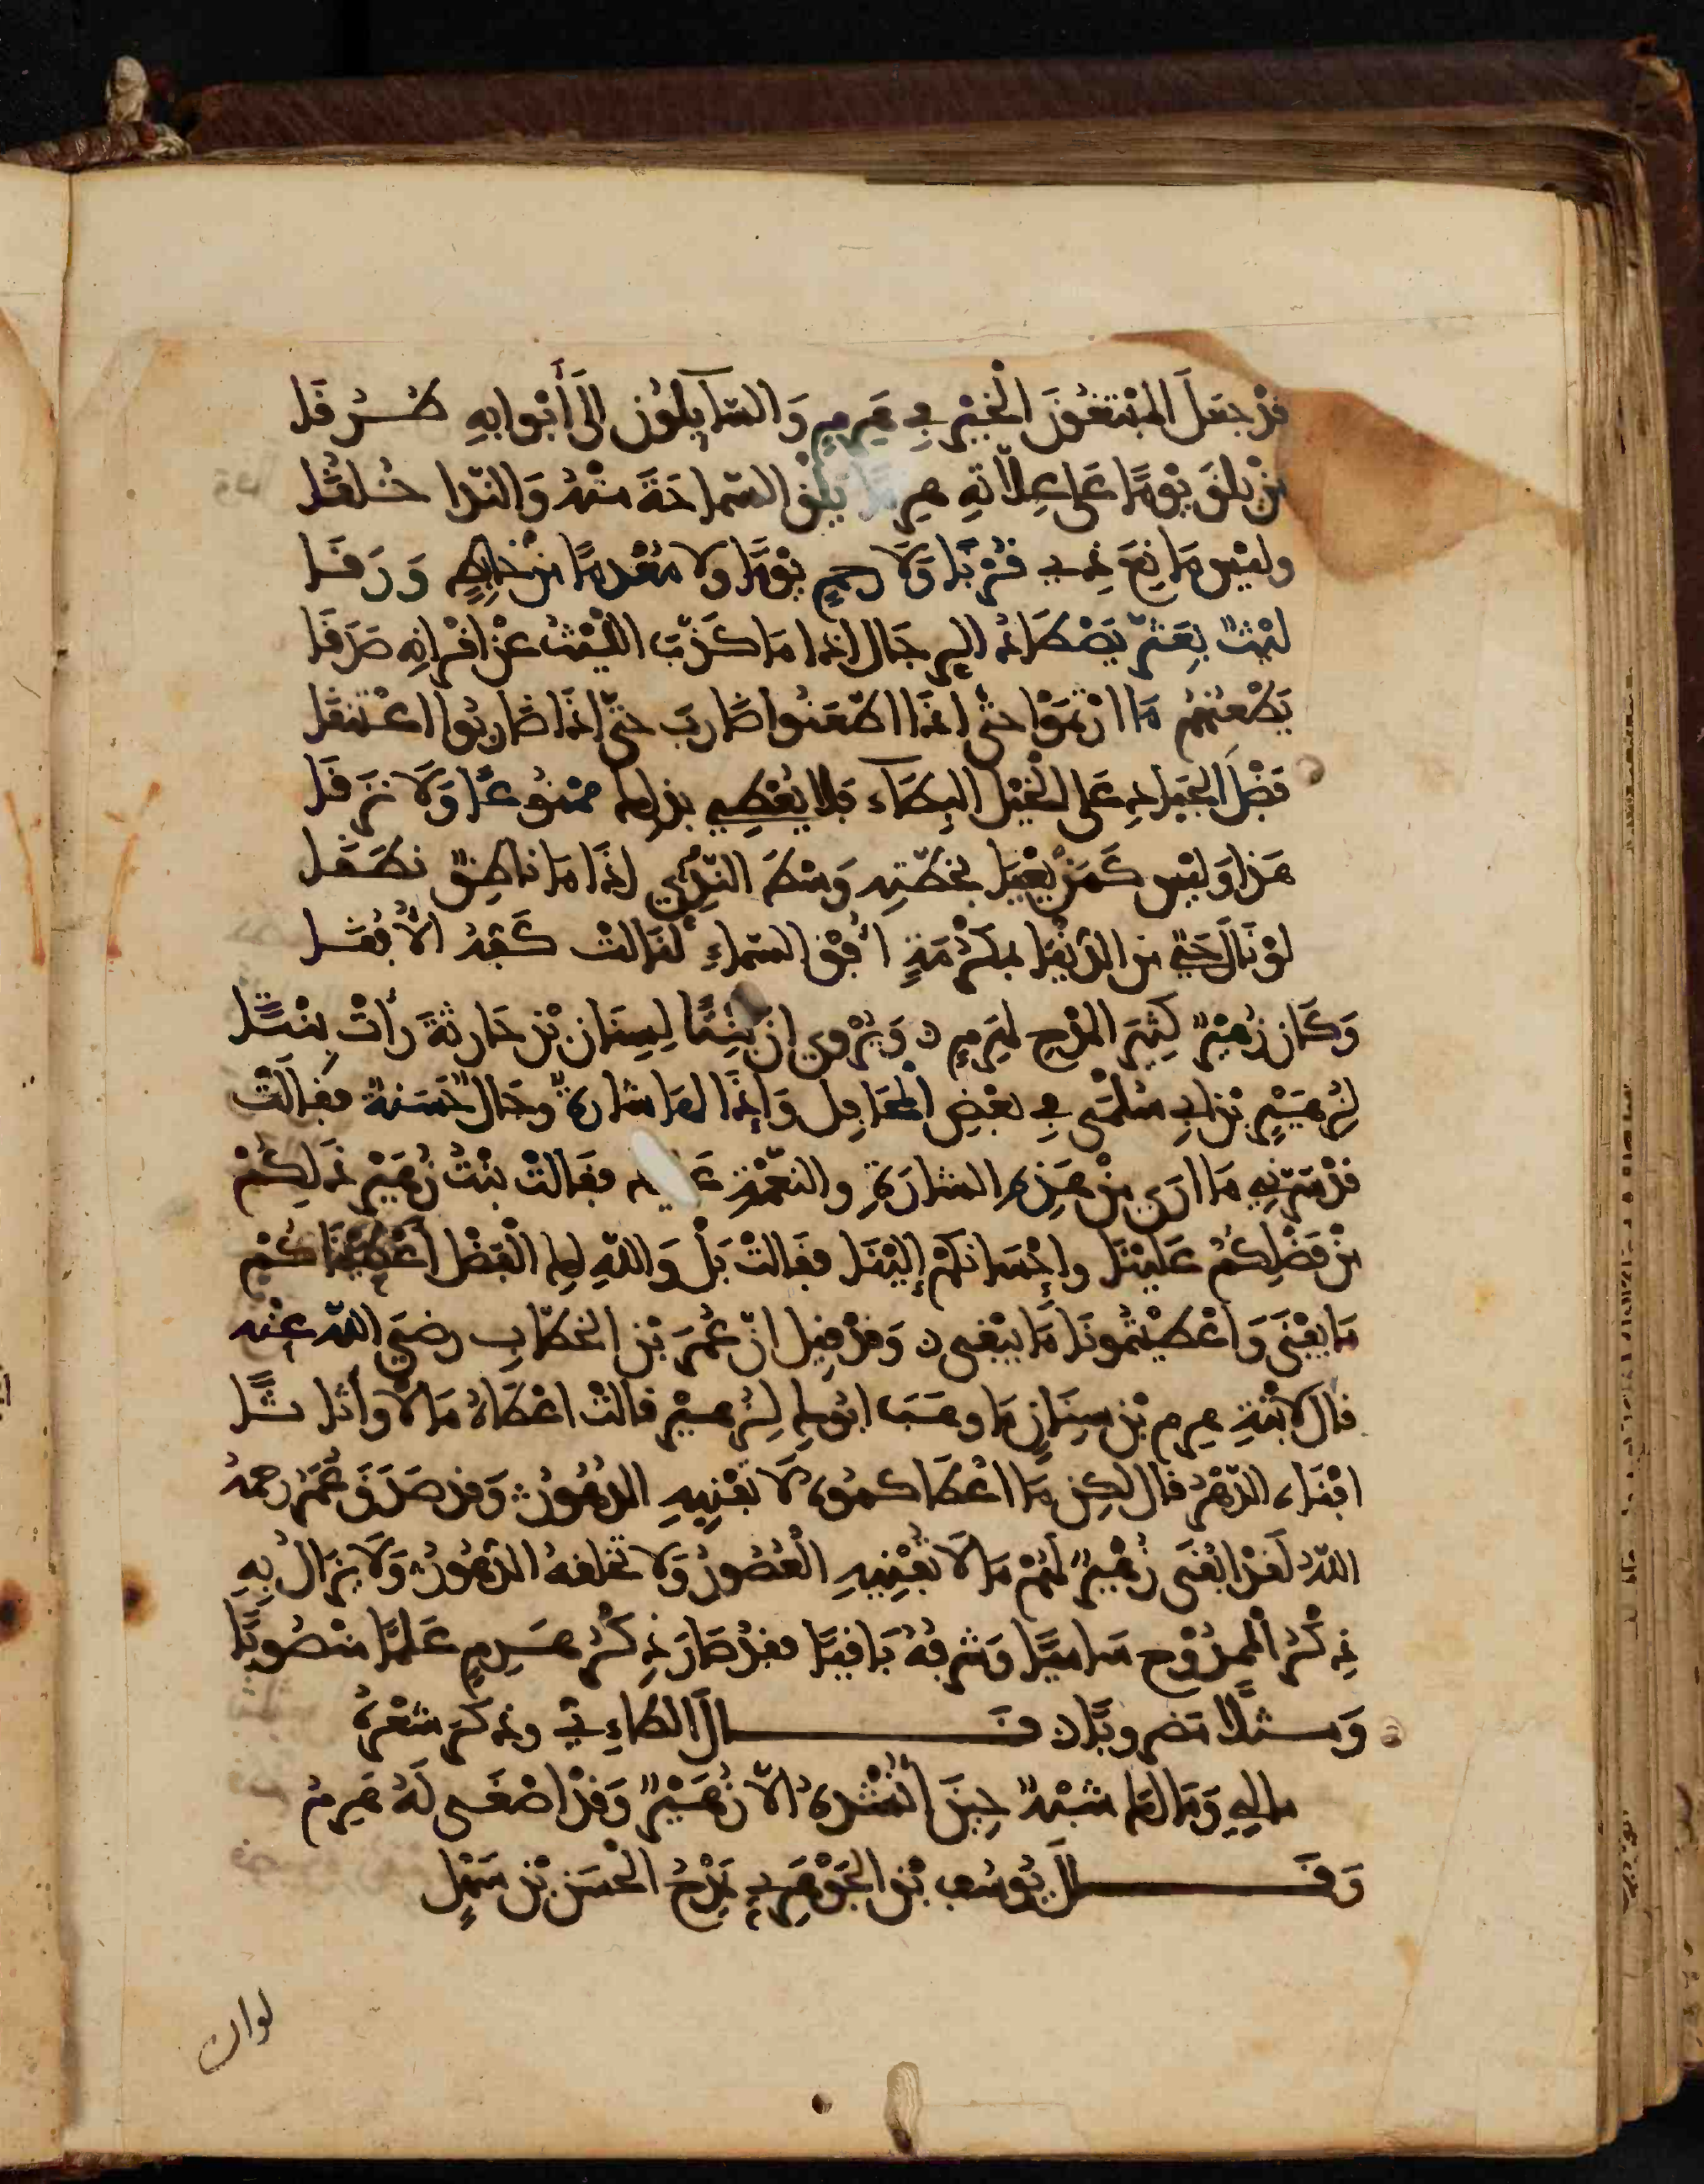 قَدْ جَعَلَ الْمُبْتَغُونَ الْخَيْرَ فِي هَرِمٍ وَالسَّايِلُونَ إِلَى أَبْوَابِهِ طُــرُقَا
مَنْ يَلْقَ يَوْمًا عَلَى عِلَّاتِهِ هَرِمًا يَلْقَ السَّمَاحَةَ مِنْهُ وَالنَّدَا خُلُقَا
وَلَيْسَ مَانِعَ ذِي قُرْبَا وَلَا رَحِمٍ يَوْمًا وَلَا مُعْدِمًا مِنْ خَابِطٍ وَرَقَــا
لَيْثٌ بِعَثَّرَ يَصْطَادُ الرِجَالَ إِذَا مَا كَذَّبَ اللَّيْثُ عَنْ أَقْرَانِهِ صَدَقَا
يَطْعُنُهُمْ مَا ارْتَمَوْا حَتَّى إِذَا اطَّعَنُوا ضَارَبَ حَتَّى إِذَا ضَارَبُوا اعْتَنَقَا
فَضْلَ الْجِيَادِ عَلَى الْخَيْلِ الْبِطَاءِ فَلَا يُعْطِي بِذَلِكَ مَمْنُوعًا وَلَا نَزِقَا
هَذَا وَلَيْسَ كَمَنْ يَعْيَا بِخُطَّتِهِ وَسْطَ النَّدِيِّ إِذَا مَا نَاطِقٌ نَطَقَا
لَوْ نَالَ حَيٌّ مِنَ الدُّنْيَا بِمَكْرُمَةٍ أُفْقَ السَّمَاءِ لَنَالَتْ كَفُّهُ الْأُفُقَــا
وَكَانَ زُهَيْرٌ كَثِيرَ الْمَدْحِ لِهَرِمٍ ۞ وَيُرْوَى أَنَّ بِنْتًا لِسِنَانِ بْنِ حَارِثَةَ رَأَتْ بِنْتًــا
لِزُهَيْرِ بْنِ أَبِي سُلْمَى فِي بَعْضِ الْمَحَافِلِ وَإِذَا لَهَا شَارَةٌ وَحَالٌ حَسَنَةٌ فَقَالَتْ
قَدْ سَرَّنِي مَا أَرَى مِنْ هَذِهِ الشَّارَةِ وَالنِّعْمَةِ عَلَيْكِ فَقَالَتْ بِنْتُ زُهَيْرٍ ذَلِكُمْ
مِنْ فَضْلِكُمْ عَلَيْنَا وَإِحْسَانِكُمْ إِلَيْنَا فَقَالَتْ بَلْ وَاللَّهِ لَكِ الْفَضْلُ أَعْطَيْنَاكُمْ
مَا يَفْنَى وَأَعْطَيْتُمُونَا مَا يَبْقَى ۞ وَقَدْ قِيلَ إِنَّ عُمَرَ بْنَ الْخَطَّابِ رَضِيَ اللَّهُ عَنْهُ
قَالَ لِابْنَةِ هَرِمِ بْنِ سِنَانٍ مَا وَهَبَ أَبُوكِ لِزُهَيْرٍ قَالَتْ أَعْطَاهُ مَالًا وَأَثَاثًــا
أَفْنَاهُ الدَّهْرُ قَالَ لَكِنْ مَا أَعْطَاكُمُوهُ لَا تُفْنِيهِ الدُّهُورُ وَقَدْ صَدَقَ عُمَرُ رَحِمَهُ
اللَّهُ لَقَدْ أَبْقَى زُهَيْرٌ لَهُمْ مَا لَا تُفْنِيهِ الْعُصُورُ وَلَا تُخْلِقُهُ الدُّهُورُ وَلَا يَزَالُ بِهِ
ذِكْرُ الْمَمْدُوحِ سَامِيًا وَشَرَفُهُ بَاقِيًا فَقَدْ صَارَ ذِكْرُ هَــرِمٍ عَلَمًا مَنْصُوبًا
وَمَــثَلًا مَضْرُوبًا ۞ قَــــالَ الطَّاءِيُّ وَذَكَرَ شِعْرَهُ
مَالِي وَمَالَكَ شِبْهٌ حِينَ أُنْشِدُهُ إِلَّا زُهَيْرٌ وَقَدْ أَصْغَى لَهُ هَرِمُ
وَقَــــالَ يُوسُفُ بْنُ الْجَوْهَرِيِّ يَمْدَحُ الْحَسَنَ بْنَ سَهْلٍ
لوان